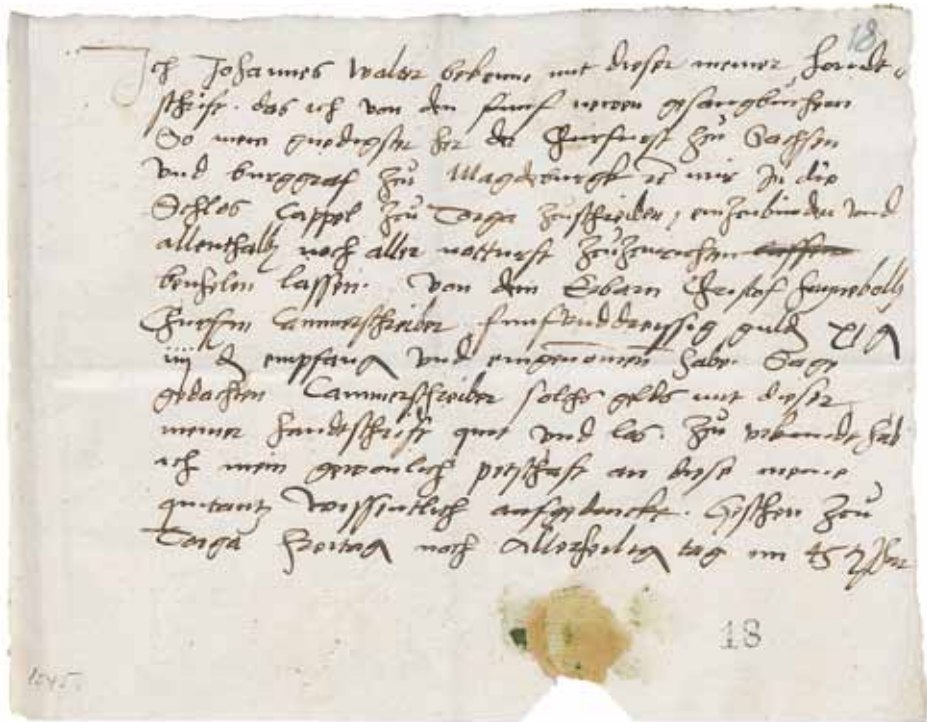 18
Ich Johannes Walter bekenne mit dieser meiner handt-
schrift. das ich von den funf newen gesangbuchern
So mein gnedigster her der Churfurst zu Sachsen
vnd burggraf zu Magdeburgk &c mir In die
Schlos Cappel zu Torga zuschreiben, einzubinden vnd
allenthalb noch aller notturft zuzurichten lassen
beuhelen lassen. Von dem Erbarn Christof
Churfn Cammerschreiber, funfvnddreissig guld XI g
iiij d empfang vnd eingenomen habe. Sage
gedachten Cammerschreiber solchs gelds mit dieser
meiner handtschrift quit vnd los. Zu vrkundt hab
ich mein gewonlich petschaft an diese meine
quitantz wissentlich aufgedruckt. Geschen zu
Torga Freitag noch Allerheilig tag im 45 Jhar
18
1545.